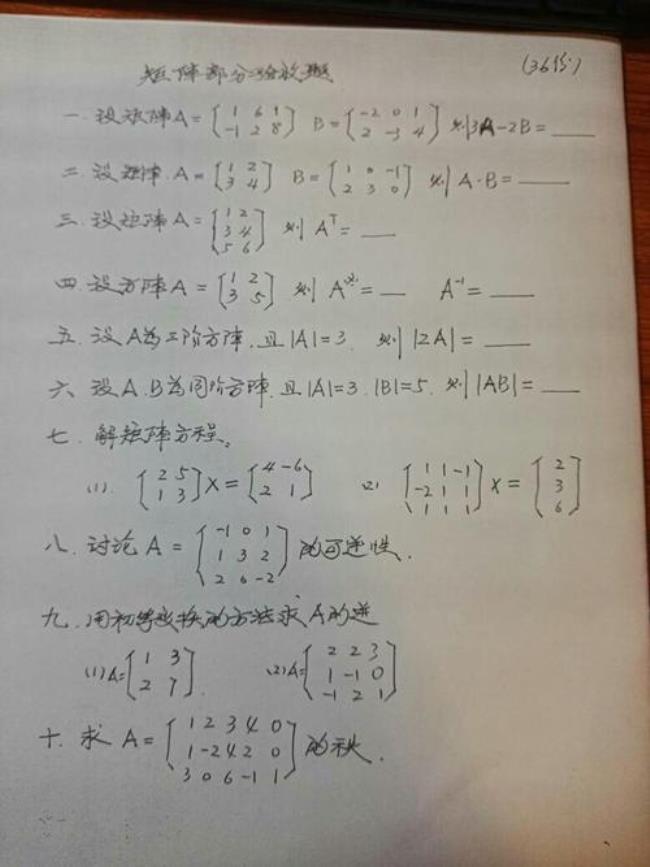 矩阵部分验收题 (36份)
一.设矩阵A=[1 6 1; -1 2 8] B=[-2 0 1; 2 -3 4] 则3A-2B=____
二.设矩阵.A=[1 2; 3 4] B=[1 0 -1; 2 3 0] 则A·B=____
三.设矩阵A=[1 2; 3 4; 5 6] 则 Aᵀ=____
四.设方阵A=[1 2; 3 5] 则 A²=__ A⁻¹=____
五.设A为三阶方阵.且|A|=3. 则|2A|=____
六.设A.B为同阶方阵.且|A|=3.|B|=5.则|AB|=____
七.解矩阵方程。
(1). [2 5; 1 3]X=[4 -6; 2 1] (2) [1 1 -1; -2 1 1; 1 1 1]X=[2; 3; 6]
八.讨论A=[-1 0 1; 1 3 2; 2 6 -2]的可逆性.
九.用初等变换的方法求A的逆
(1)A=[1 3; 2 7]. (2)A=[2 2 3; 1 -1 0; -1 2 1]
十.求A=[1 2 3 4 0; 1 -2 4 2 0; 3 0 6 -1 1]的秩.